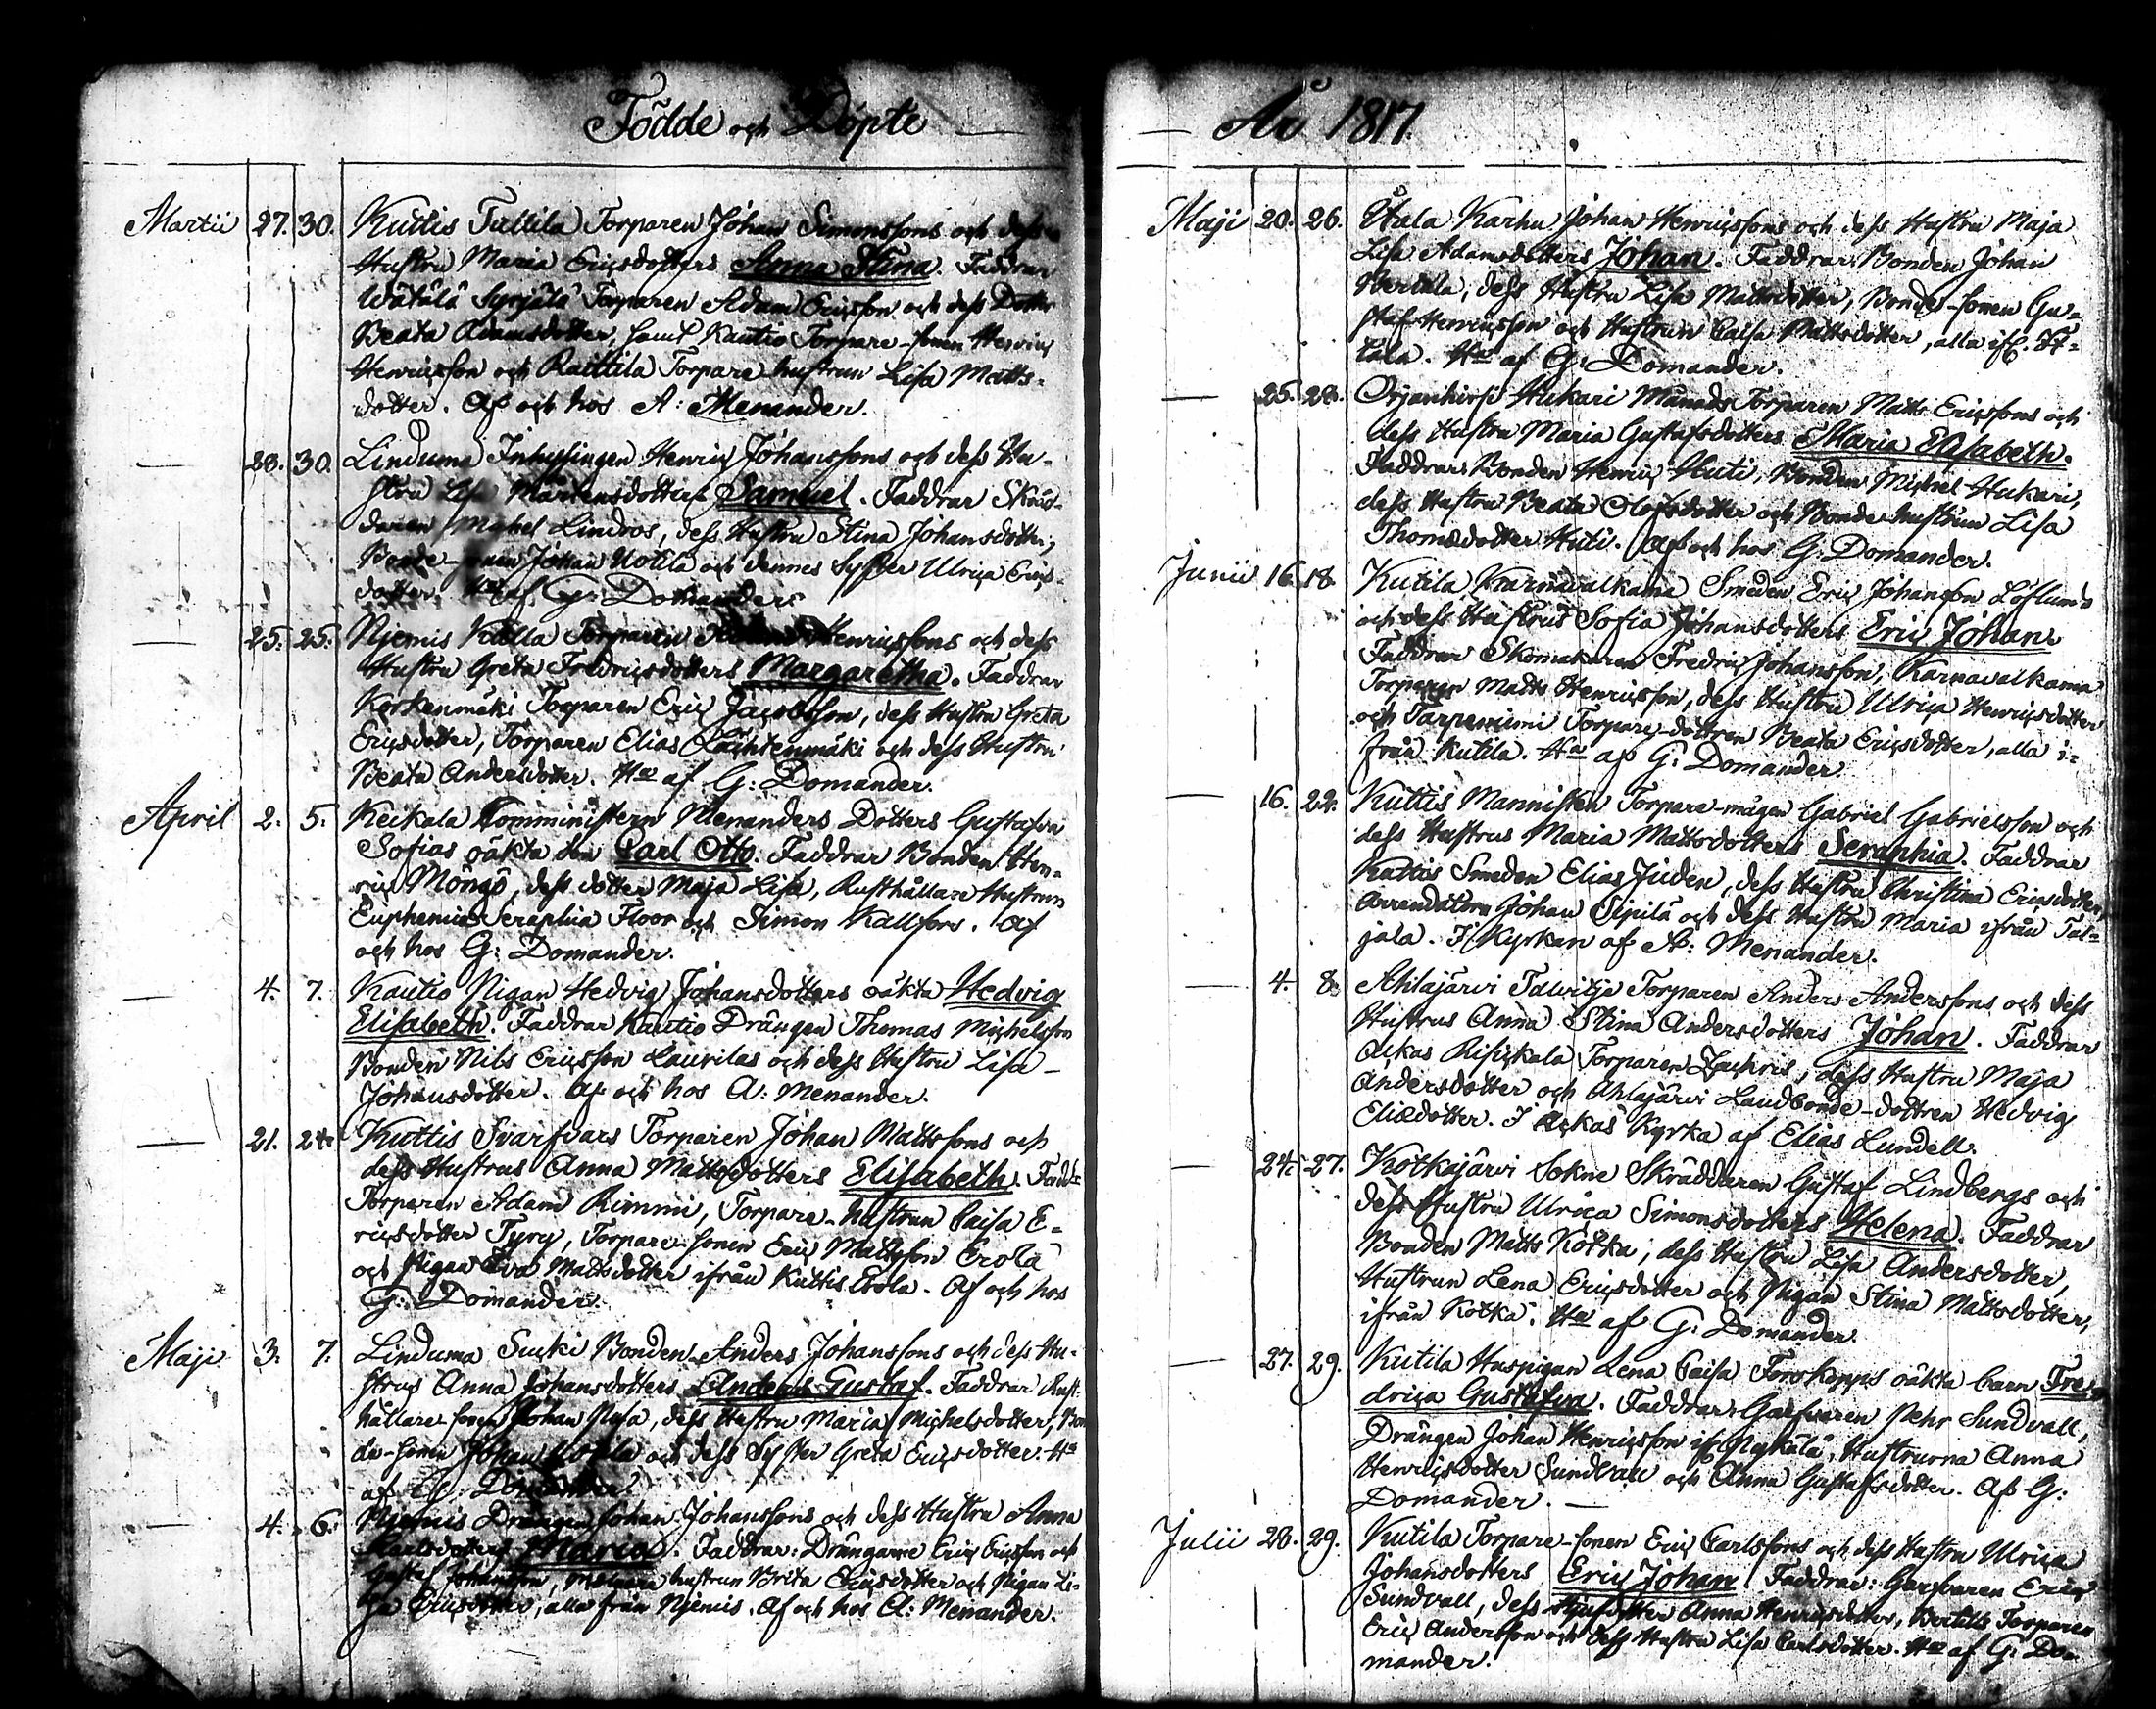 Födde och Döpte
Martii 27. 30. Kuttis Tulttila Torparen Johan Simonssons och dess
Hustru Maria Ericsdotters Anna Stina. Faddrar
Wätälä Syrjälä Torparen Adam Ericsson och dess Dotter
Beata Adamsdotter, samt Kautio Torpare-sonen Henric
Henricsson och Raittila Torpare hustrun Lisa Matts-
dotter. Af och hos A: Menander.
— 28. 30. Linduma Inhysingen Henric Johanssons och dess Hu-
stru Lisa Mårtensdotters Samuel. Faddrar Skräd-
daren Michel Lindroos, dess Hustru Stina Johansdotter,
Bonde- Johan Uotila och dennes Syster Ulrica Erics-
dotter. Hos af G: Domander.
— 25. 25. Njemis Torparen Henricssons och dess
Hustru Greta Fredricsdotters Margaretha. Faddrar
Korkenmäki Torparen Eric Jacobsson, dess Hustru Greta
Ericsdotter, Torparen Elias Lächtenmäki och dess Hustru
Beata Andersdotter. Hos af G: Domander.
April 2. 5. Keikala Comministern Menanders Dotters Gustafva
Sofias oäkta son Carl Otto. Faddrar Bonden Hen-
ric Möngö, dess dotter Maja Lisa, Rusthållare Hustrun
Euphemia Seraphia Floor och Simon Kallfors. Af
och hos G: Domander.
— 4. 7. Kautio Pigan Hedvig Johansdotters oäkta Hedvig
Elisabeth. Faddrar Kautio Drängen Thomas Michelsson
Bonden Nils Ericsson Laurilas och dess Hustru Lisa
Johansdotter. Af och hos A: Menander.
— 21. 24. Kuttis Svarfvars Torparen Johan Mattssons och
dess Hustrus Anna Mattsdotters Elisabeth. Fadd:
Torparen Adam Rimmi, Torpare-hustrun Caisa E-
ricsdotter Tyry, Torpare sonen Eric Mattsson Erola
och Pigan Eva Mattsdotter ifrån Kuttis Erola. Af och hos
G: Domander.
Maji 3. 7. Linduma Sucki Bonden Anders Johanssons och dess Hu-
strus Anna Johansdotters Anders Gustaf. Faddrar Rust-
hållare sonen Johan Pusa, dess Hustru Maria Michelsdotter, Bon
de-sonen Johan Uotila och dess Syster Greta Ericsdotter. Hos
af G: Domander.
— 4. 6. Njemis Drängen Johan Johanssons och dess Hustru Anna
Karlsdotters Maria. Faddrar: Drängarne Eric Ericsson och
Gustaf Johansson, hustrun Brita Ericsdotter och Pigan Li-
sa Ericsdotter, alla från Njemis. Af och hos A: Menander.
År 1817.
Maji 20. 26. Utala Karhu Johan Henricssons och dess Hustru Maja
Lisa Adamsdotters Johan. Faddrar: Bonden Johan
Bertula, dess Hustru Lisa Mattsdotter, Bonde-sonen Gu-
staf Henricsson och Hustrun Caisa Mattsdotter, alla if. It-
tala. Hos af G: Domander.
— 25. 28. Orjanhirsi Hukari Månads Torparen Matts Ericssons och
dess Hustru Maria Gustafsdotters Maria Elisabeth.
Faddrar: Bonden Henric Huti, Bonden Michel Hukari,
dess Hustru Beata Olofsdotter och Bonde hustrun Lisa
Thomædotter Huti. Af och hos G: Domander.
Junii 16. 18. Kutila Karnavalkama Smeden Eric Johansson Löflunds
och dess Hustrus Sofia Johansdotters Eric Johan
Faddrar Skomakaren Fredric Johansson, Karnavalkama
Torparen Matts Henricsson, dess Hustru Ulrica Henricsdotter
och Tarpeniemi Torpare-dottren Beata Ericsdotter, alla i-
från Kutila. Hos af G: Domander
— 16. 22. Kuttis Mannisten Torpare-mågen Gabriel Gabrielsson och
dess Hustrus Maria Mattsdotters Seraphia. Faddrar
Kattis Smeden Elias Juden, dess Hustru Christina Ericsdotter,
Arrendatorn Johan Sipilä och dess Hustru Maria ifrån Tal-
jala. I Kyrkan af A: Menander.
— 4. 8. Ahlajärvi Talvitje Torparen Anders Anderssons och dess
Hustrus Anna Stina Andersdotters Johan. Faddrar
Ackas Risickala Torparen Zachris, dess Hustru Maja
Andersdotter och Ahlajärvi Landbonde-dottren Hedvig
Eliædotter. I Ackas Kyrka af Elias Lundell.
— 24. 27. Kotkajärvi Sokne Skräddaren Gustaf Lindbergs och
dess Hustru Ulrica Simonsdotters Helena. Faddrar
Bonden Matts Kotka, dess Hustru Lisa Andersdotter,
Hustrun Lena Ericsdotter och Pigan Stina Mattsdotter,
ifrån Kotka. Hos af G: Domander.
— 27. 29. Kutila Huspigan Lena Caisa Forskopps oäkta barn Fre-
drica Gustafva. Faddrar: Garfvaren Pehr Sundvall,
Drängen Johan Henricsson if. Nykälä, Hustrurna Anna
Henricsdotter Sundvall och Anna Gustafsdotter. Af G:
Domander. —
Julii 28. 29. Kutila Torpare-sonen Eric Carlssons och dess Hustru Ulrica
Johansdotters Eric Johan. Faddrar: Garfvaren Eric
Sundvall, dess Anna Henricsdotter, Bertills Torparen
Eric Andersson och dess Hustru Lisa Carlsdotter. Hos af G: Do-
mander.